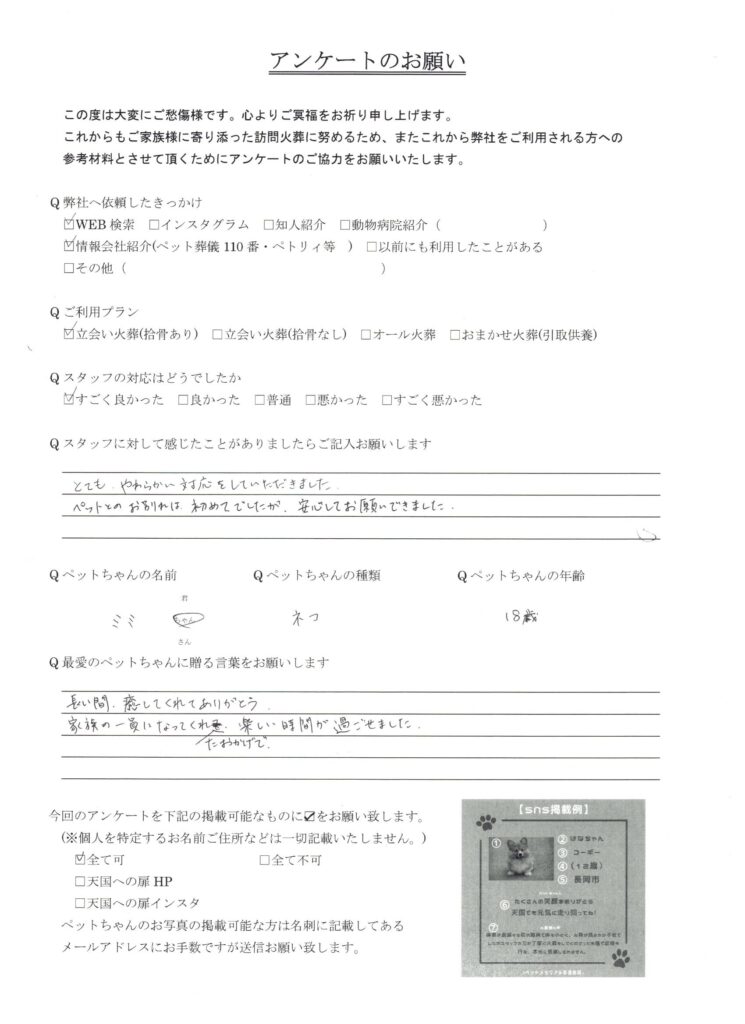 アンケートのお願い
この度は大変にご愁傷様です。心よりご冥福をお祈り申し上げます。
これからもご家族様に寄り添った訪問火葬に努めるため、またこれから弊社をご利用される方への
参考材料とさせて頂くためにアンケートのご協力をお願いいたします。
Q 弊社へ依頼したきっかけ
☑WEB 検索 □インスタグラム □知人紹介 □動物病院紹介（ ）
☑情報会社紹介(ペット葬儀 110 番・ペトリィ等 ) □以前にも利用したことがある
□その他（ ）
Q ご利用プラン
☑立会い火葬(拾骨あり) □立会い火葬(拾骨なし) □オール火葬 □おまかせ火葬(引取供養)
Q スタッフの対応はどうでしたか
☑すごく良かった □良かった □普通 □悪かった □すごく悪かった
Q スタッフに対して感じたことがありましたらご記入お願いします
とても、やわらかい対応をしていただきました。
ペットとのお別れは初めてでしたが、安心してお願いできました。
Q ペットちゃんの名前 Q ペットちゃんの種類 Q ペットちゃんの年齢
君
ミミ ちゃん ネコ 18歳
さん
Q 最愛のペットちゃんに贈る言葉をお願いします
長い間、癒してくれてありがとう。
家族の一員になってくれ 、楽しい時間が過ごせました。
たおかげで
今回のアンケートを下記の掲載可能なものに☑をお願い致します。
(※個人を特定するお名前ご住所などは一切記載いたしません。)
☑全て可 □全て不可
□天国への扉 HP
□天国への扉インスタ
ペットちゃんのお写真の掲載可能な方は名刺に記載してある
メールアドレスにお手数ですが送信お願い致します。
【sns掲載例】
① ② はなちゃん
③ コーギー
④ （12歳）
⑤ 長岡市
⑥ たくさんの笑顔をありがとう
天国でも元気に走り回ってね！
⑦